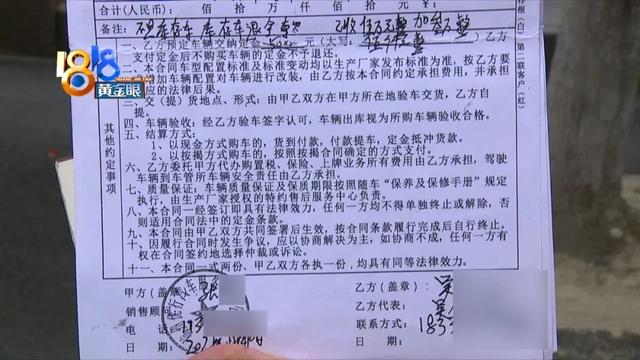 合计(人民币): 佰 拾 万 仟 佰 拾
备注: 不是库存车 库存车退全款
二、乙方预定车辆交纳定金 元(大写:
支付定金后不购买车辆的定金不予退还。
三、本合同车型配置标准及标准变动均以生产厂家发布标准为准,按乙方要
加车辆配置对车辆进行改装,由乙方按本合同约定承担费用,并承担
应的法律后果。
三、交(提)货地点、形式:由甲乙双方在甲方所在地验车交货,乙方自
提。
四、车辆验收:经乙方验车签字认可,车辆出库视为所购车辆验收合格。
五、结算方式:
1、以现金方式购车的,货到付款,付款提车,定金抵冲货款。
2、以按揭方式购车的,按照按揭合同确定的方式支付。
六、乙方委托甲方代办购置税、保险、上牌业务所有费用由乙方承担,驾驶
车辆到车管所车辆安全责任由乙方承担。
七、质量保证:车辆质量保证及保质期限按照随车“保养及保修手册”规定
执行,由生产厂家授权的特约售后服务中心负责。
八、本合同一经签订即具有法律效力,任何一方均不得单独终止或解除,否
则适用合同法中的定金条款。
九、本合同由甲乙双方共同签署后生效,按合同条款履行完成后自行终止。
十、因履行合同时发生争议,应以协商解决为主,如协商不成,任何一方有
权在合同签约地选择仲裁或诉讼。
十一、本合同一式两份、甲乙双方各执一份,均具有同等法律效力。
其他约定事项
第二联客户(红)
甲方(盖章 张
乙方(盖章):吴
销售顾问
乙方代表:
电 话
联系方式:183
日期:
日 期:
1818
黄金眼